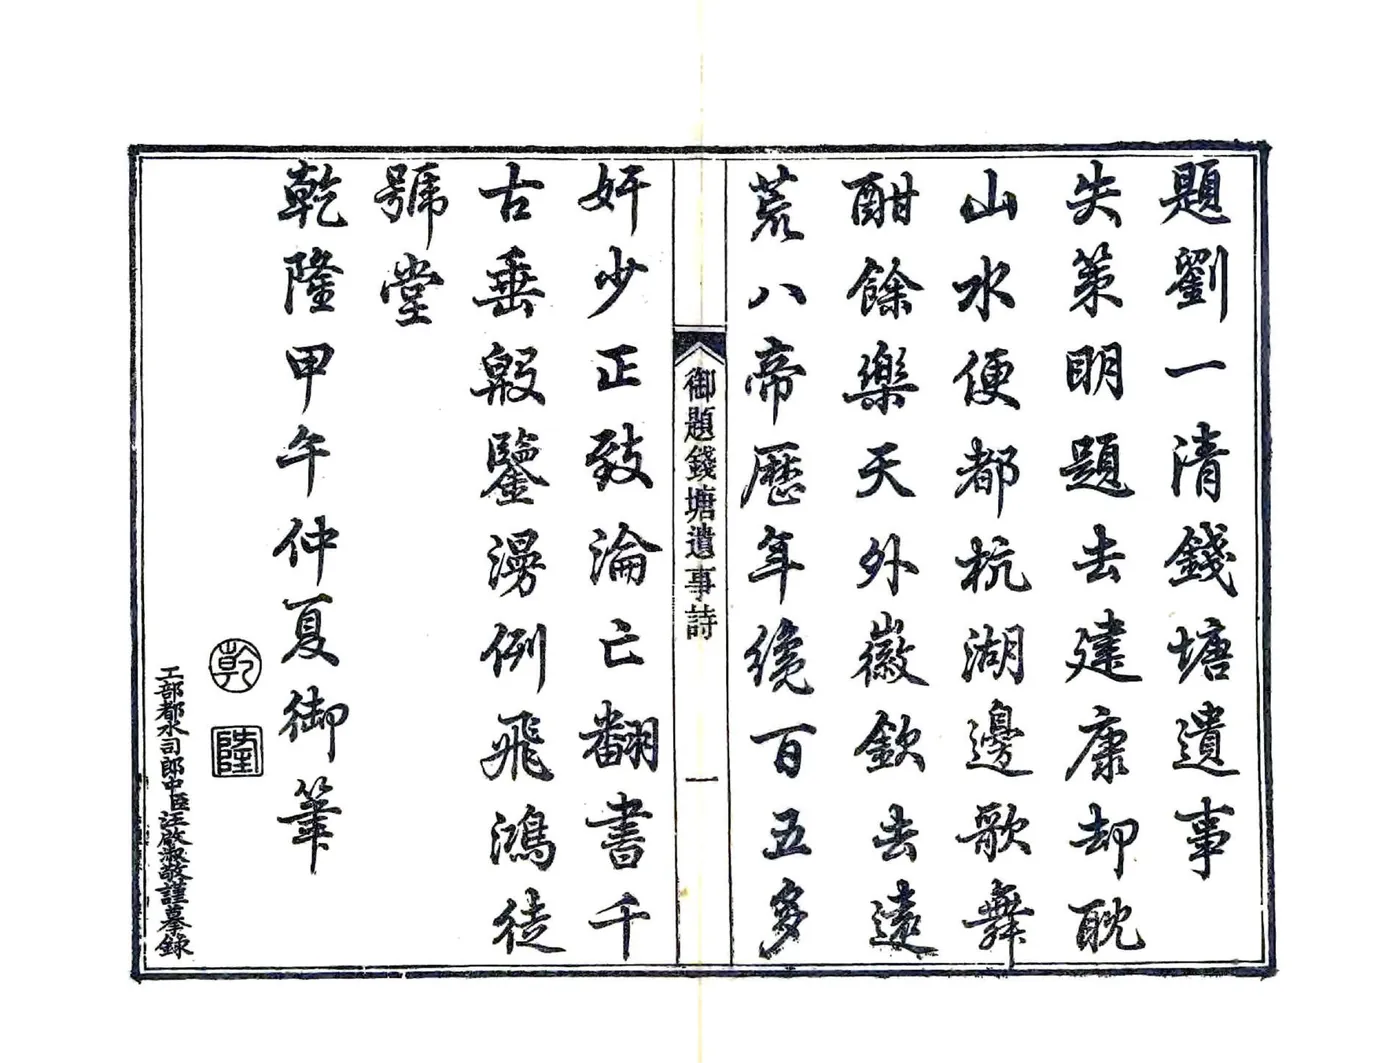 題劉一清錢塘遺事
失策明題去建康却耽
山水便都杭湖邊歌舞
酣餘樂天外徽欽去遠
荒八帝歷年纔百五多
奸少正致淪亡翻書千
古垂殷鑒漫例飛鴻徒
號堂
乾隆甲午仲夏御筆
乾
隆
工部都水司郎中臣汪啟淑敬謹摹錄
御題錢塘遺事詩
一